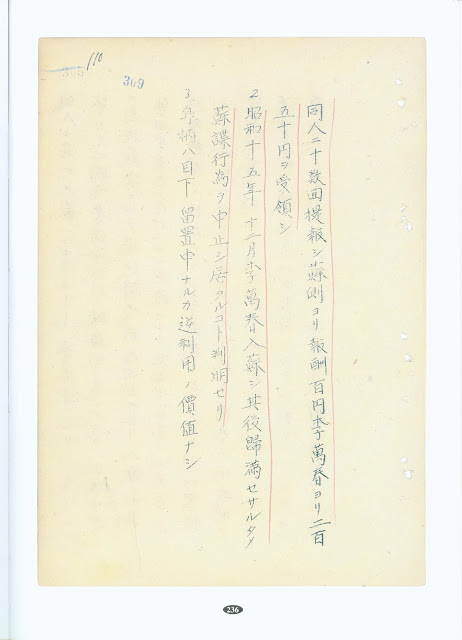 110
309
同人ニ十数回提報シ蘇側ヨリ報酬百円李萬春ヨリ二百
五十円ヲ受領シ
2 昭和十五年十二月李萬春入蘇シ其後歸満セサルタメ
蘇諜行為ヲ中止シ居タルコト判明セリ
3 身柄ハ目下留置中ナルカ逆利用ノ價値ナシ
236